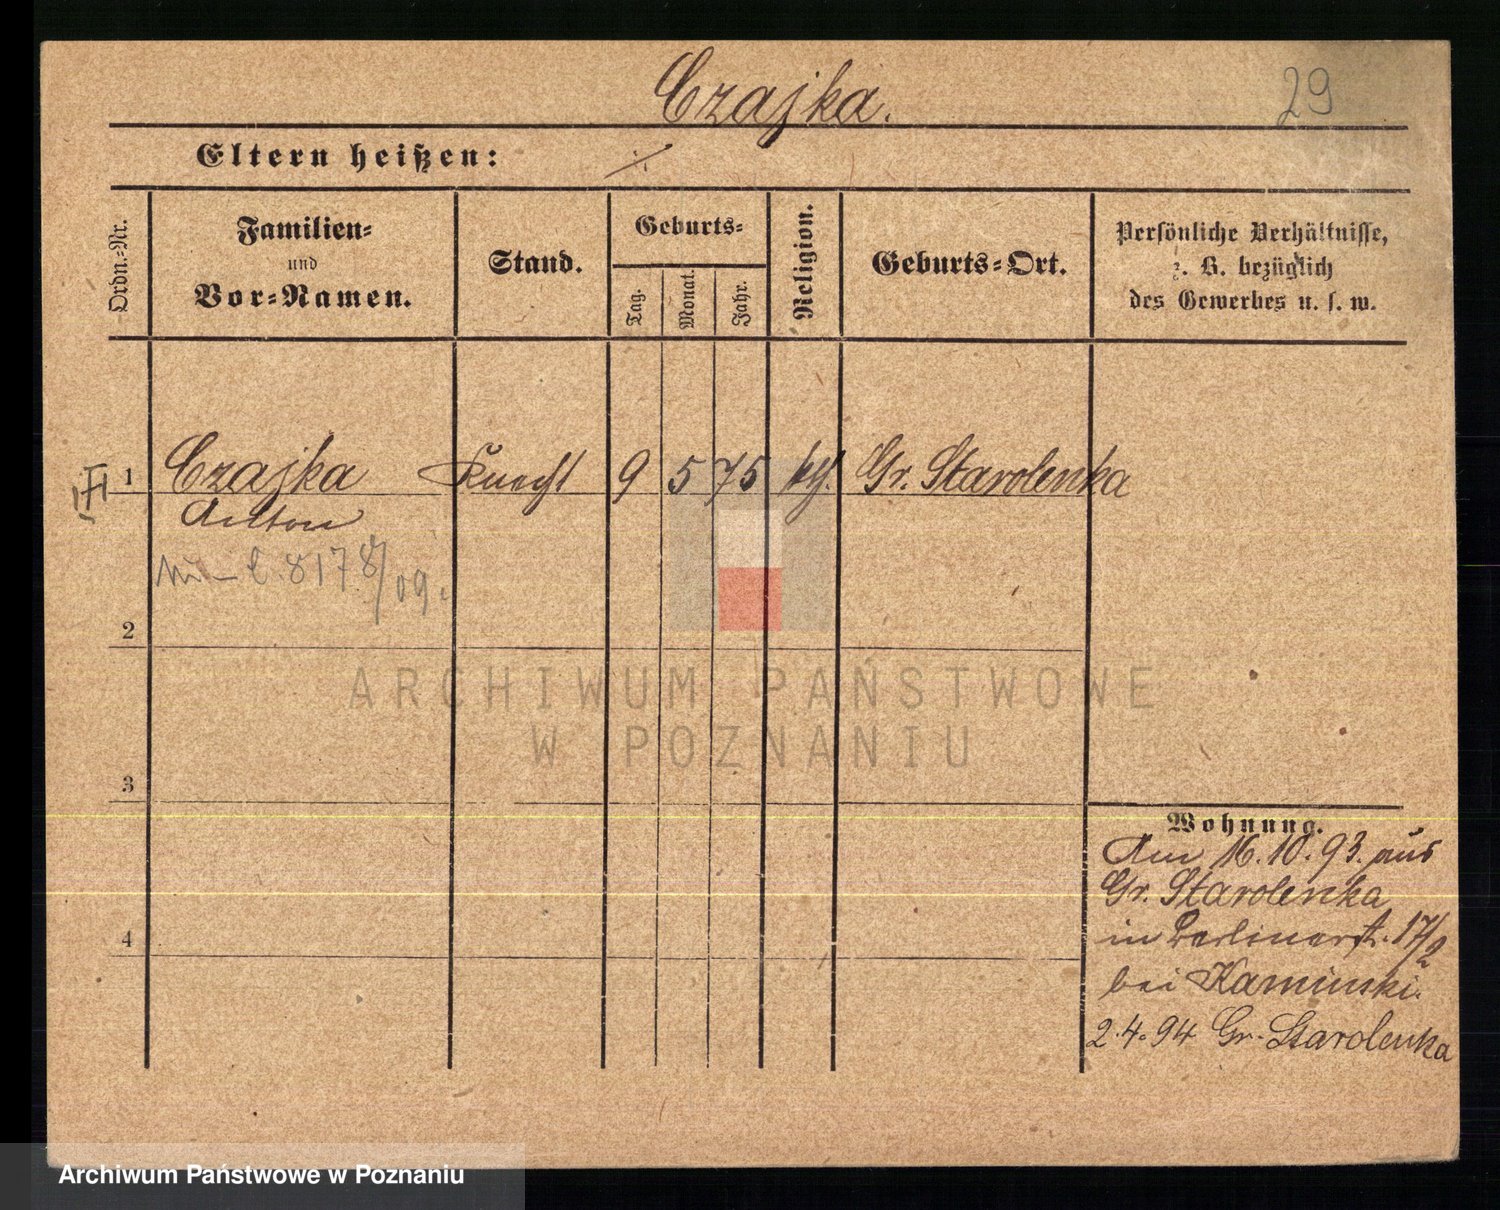 Czajka.
29
Eltern heißen:
Ordn.-Nr.
Familien-
und
Vor-Namen.
Stand.
Geburts-
Tag.
Monat.
Jahr.
Religion.
Geburts-Ort.
Persönliche Verhältnisse,
z. B. bezüglich
des Gewerbes u. s. w.
1 Czajka Knecht 9 5 75 kth. Gr. Starolenka
Anton
8178/09.
2
ARCHIWUM PAŃSTWOWE
W POZNANIU
3
Wohnung.
Am 16.10.93. aus
Gr. Starolenka
4
in Berlinerst. 17/2
bei Kaminski.
2.4.94 Gr. Starolenka
Archiwum Państwowe w Poznaniu